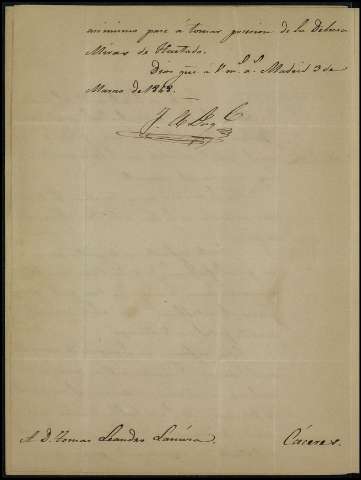 asimismo pase á tomar posesion de la Dehesa
Meras de Hurtado.
Dios gue. á V. m. a. Madrid 3 de
Marzo de 1848.
A D. Tomas Leandro
Cáceres.